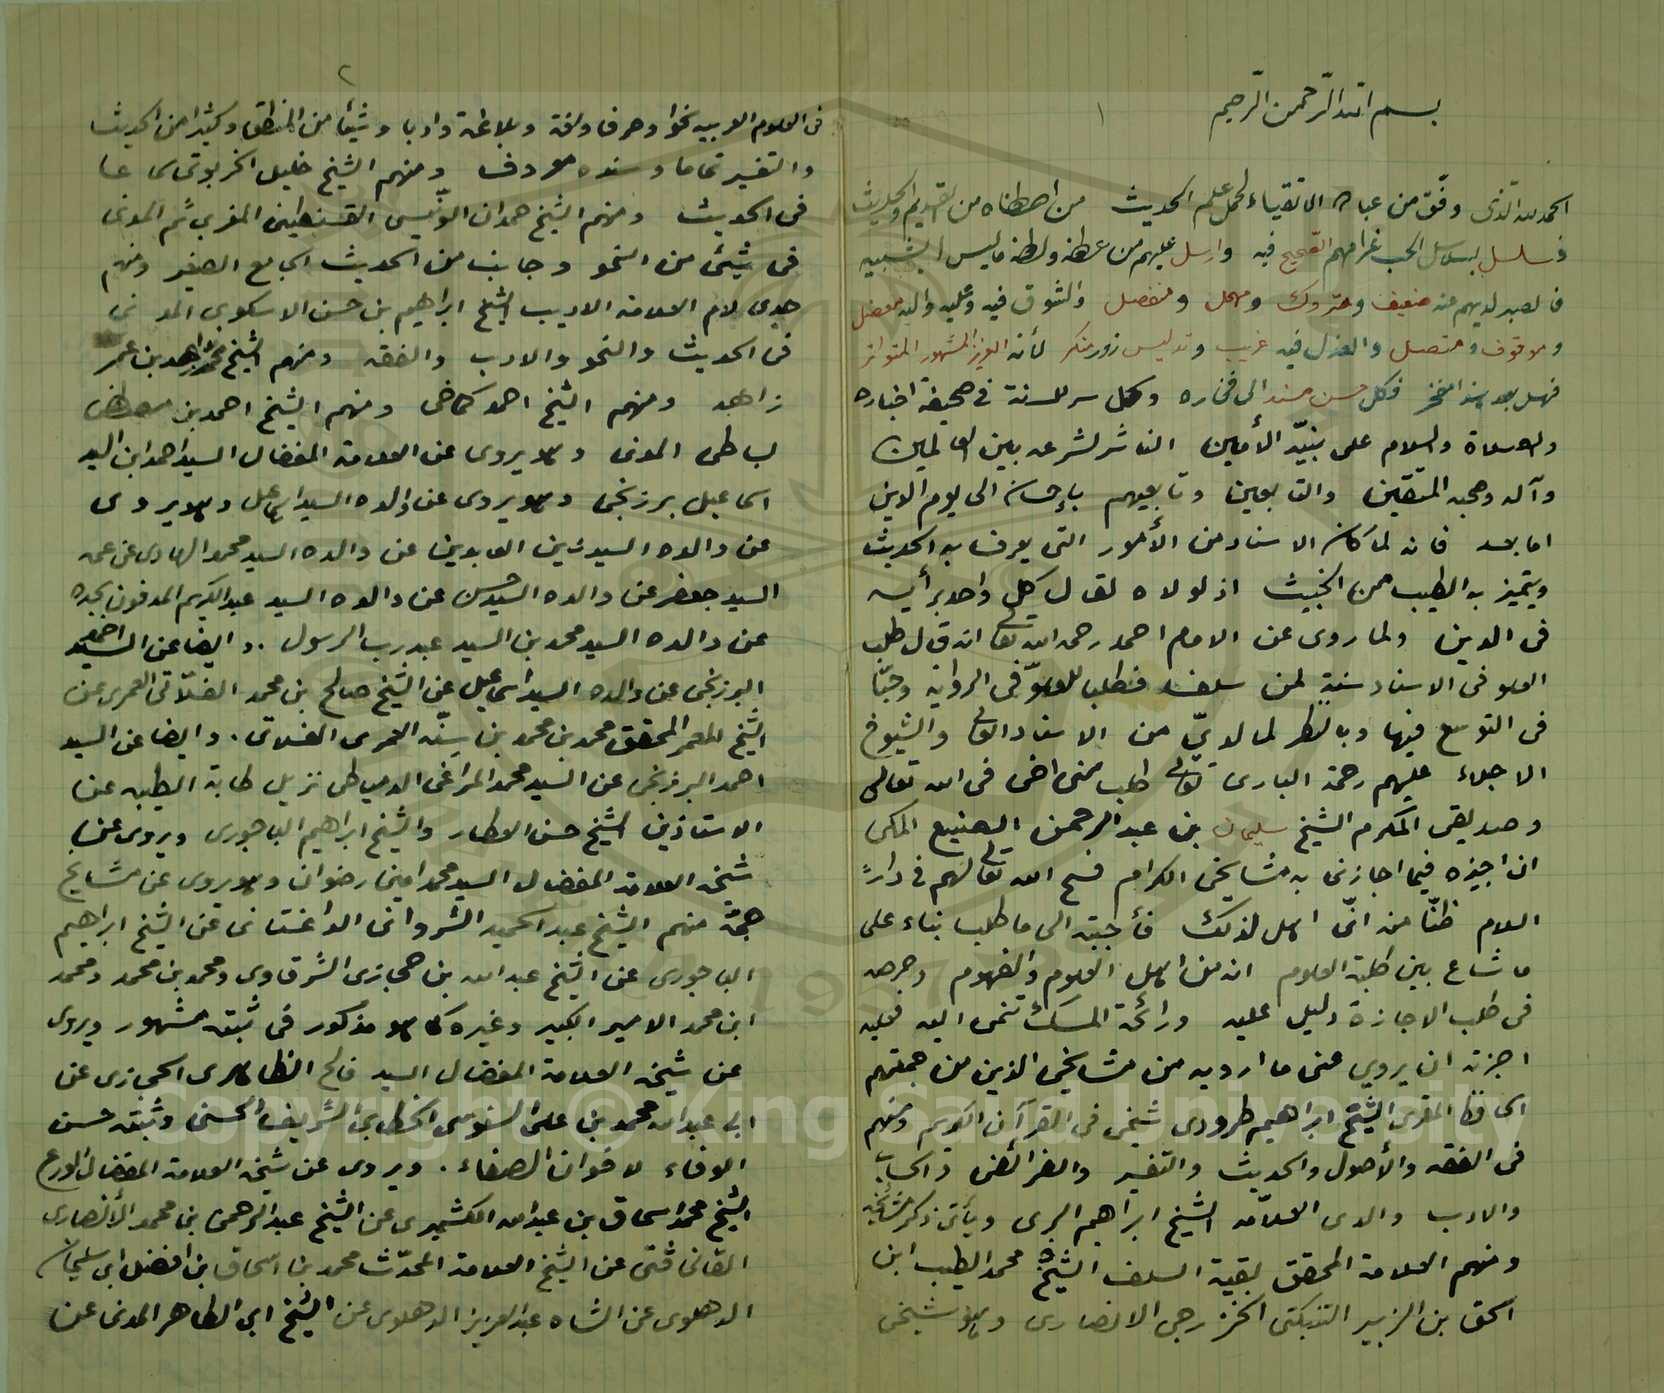 بسم الله الرّحمن الرّحيم
١
الحمد لله الّذى وفّق من عباده الاتقياء لحمل علم الحديث من اصطفاه من القديم والحديث
فسلسل بسلاسل الحب غرامهم الصحيح فيه وارسل عليهم من عطفه ولطفه ما ليس له شبيه
فالصبر لديهم عنه ضعيف ومتروك ومهمل ومنفصل والشوق فيه وعليه واليه معضل
وموقوف ومتصل والعذل فيه غريب وتدليس زور منكر لأنه العزيز المشهور المتواتر
فهل بعد هذا مفخر فكل حسن مسند الى فخاره وكل سر للسنة فى صحيفة اخباره
والصلاة والسلام على نبيّه الأمين الناشر لشرعه بين العالمين
وآله وصحبه المتقين والتابعين وتابعيهم بإحسان الى يوم الدين
اما بعد فانه لما كان الاسناد من الأمور التى يعرف به الحديث
ويتميز به الطيب من الخبيث اذ لولاه لقال كل واحد برأيه
فى الدين ولما روى عن الامام احمد رحمه الله تعالى انه قال طلب
العلو فى الاسناد سنة لمن سلف فطلبا للعلوّ فى الرواية وحبّا
فى التوسع فيها وبالنظر لما لديّ من الاسناد العالى والشيوخ
الاجلاء عليهم رحمة البارى تعالى طلب منى اخى فى الله تعالى
وصديقى المكرم الشيخ سليمان بن عبد الرحمن الصنيع المكى
ان اجيزه فيما اجازنى به مشايخى الكرام فسح الله تعالى لهم فى دار
السلام ظنّا منه انّى اهل لذلك فأجبته الى ما طلب بناء على
ما شاع بين طلبة العلوم انه من اهل العلوم والفهوم وحرصه
فى طلب الاجازة دليل عليه ورائحة المسك تنمى اليه فعليه
اجزته ان يروي عنى ما ارويه من مشايخى الذين من جملتهم
الحافظ المقرى الشيخ ابراهيم طرودى شيخى فى القرآن الكريم ومنهم
فى الفقه والأصول والحديث والتفسير والفرائض والحساب
والادب والدى العلاّمة الشيخ ابراهيم البرى ويأتى ذكر مشائخه
ومنهم العلامة المحقق بقية السلف الشيخ محمد الطيب ابن
اسحق بن الزبير التنبكتى الخزرجى الانصارى وهو شيخى
٢
فى العلوم العربيه نحوا وصرفا ولغة وبلاغة وادبا وشيئا من المنطق وكثيرا من الحديث
والتفسير تماما وسنده معروف ومنهم الشيخ خليل الخربوتى
فى الحديث ومنهم الشيخ حمدان الونّيسى القسنطينى المغربى ثم المدنى
فى شيئ من النحو وجانب من الحديث الجامع الصغير ومنهم
جدى لام العلامة الاديب الشيخ ابراهيم بن حسن الاسكوبى المدنى
فى الحديث والنحو والادب والفقه ومنهم الشيخ بن عمر
زاهد ومنهم الشيخ احمد كماخى ومنهم الشيخ احمد بن مصطفى
بساطى المدنى وهو يروى عن العلامة المفضال السيد احمد ابن السيد
اسماعيل برزنجى وهو يروى عن والده السيد اسماعيل وهو يروى
عن والده السيد زين العابدين عن والده السيد محمد الهادى عن عمه
السيد جعفر عن والده السيد حسن عن والده السيد عبد الكريم المدفون بجده
عن والده السيد محمد بن السيد عبد رب الرسول . وايضا عن السيد احمد
البرزنجى عن والده السيد اسماعيل عن الشيخ صالح بن محمد الفلاّنى العمرى عن
الشيخ المعمر المحقق محمد بن محمد بن سِنّه العمرى الفلانى . وايضا عن السيد
احمد البرزنجى عن السيد محمد المراغى الدمياطى نزيل طابة الطيبه عن
الاستاذين الشيخ حسن العطار والشيخ ابراهيم الباجورى ويروى عن
شيخه العلامة المفضال السيد محمد امين رضوان وهو يروى عن مشايخ
جمّة منهم الشيخ عبد الحميد الشروانى الداغستانى عن الشيخ ابراهيم
الباجورى عن الشيخ عبد الله بن حجازى الشرقاوى ومحمد بن محمد ومحمد
ابن محمد الامير الكبير وغيره كما هو مذكور فى ثبته مشهور ويروى
عن شيخه العلامة المفضال السيد فالح الظاهرى الحجازى عن
ابى عبد الله محمد بن على السنوسى الخطابى الشريف الحسنى وثبته حسن
الوفاء لاخوان الصفاء . ويروى عن شيخه العلامة المفضال الورع
الشيخ محمد اسحاق بن عبد الله الكشميرى عن الشيخ عبد الرحمن بن محمد الأنصارى
الفانى فتى عن الشيخ العلامة المحدّث محمد بن اسحاق بن افضل ابى سليمان
الدهلوى عن الشاه عبد العزيز الدهلوى عن الشيخ ابى الطاهر المدنى عن
Copyright © King Saud University
1957